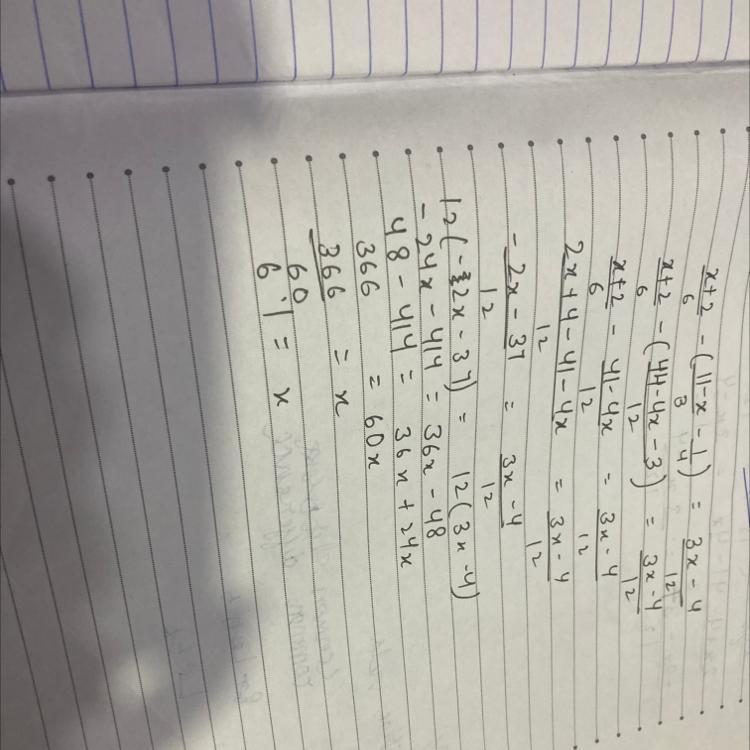 x+2/6 - (11-x/3 - 1/4) = 3x-4/12
x+2/6 - (44-4x-3/12) = 3x-4/12
x+2/6 - 41-4x/12 = 3x-4/12
2x+4-41-4x/12 = 3x-4/12
-2x-37/12 = 3x-4/12
12(-2x-37) = 12(3x-4)
-24x-414 = 36x-48
48-414 = 36x+24x
366 = 60x
366/60 = x
6.1 = x